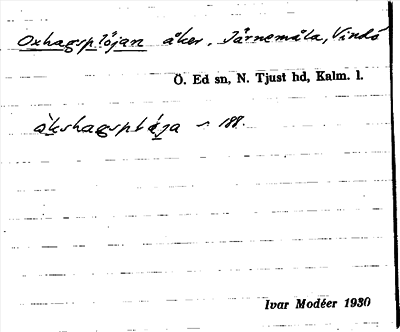 Oxhagsplöjan åker, Järnemåla, Vindö
Ö. Ed sn, N. Tjust hd, Kalm. l.
188.
Ivar Modéer 1930